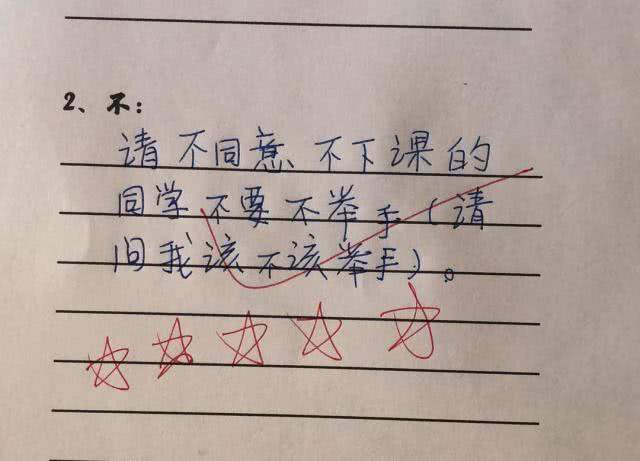 2、不:
请不同意不下课的
同学不要不举手(请
问我该不该举手)。